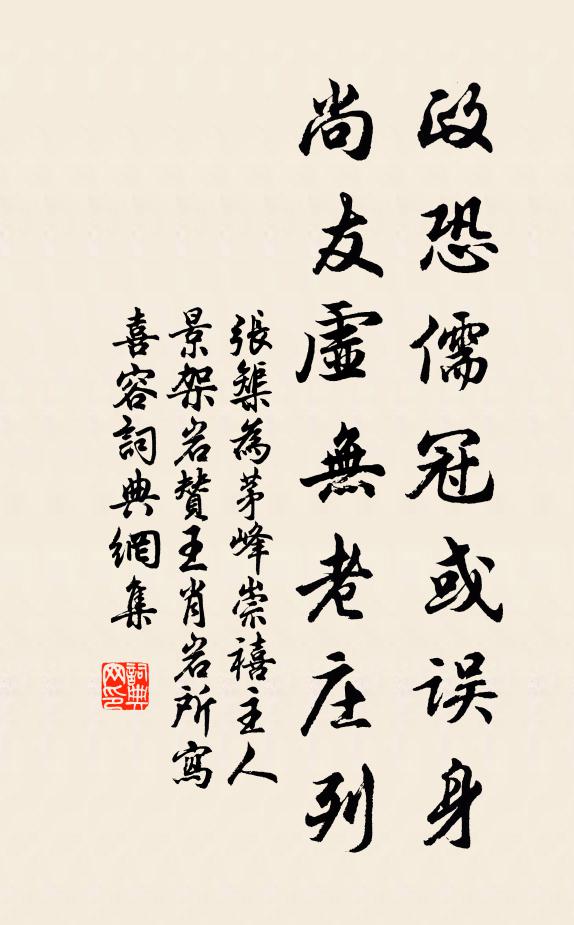 政恐儒冠或误身
尚友虛無老庄列
張榘為茅峰崇禧主人
景架岩贊王肖岩所寫
喜容詞典網集
詞典
网印